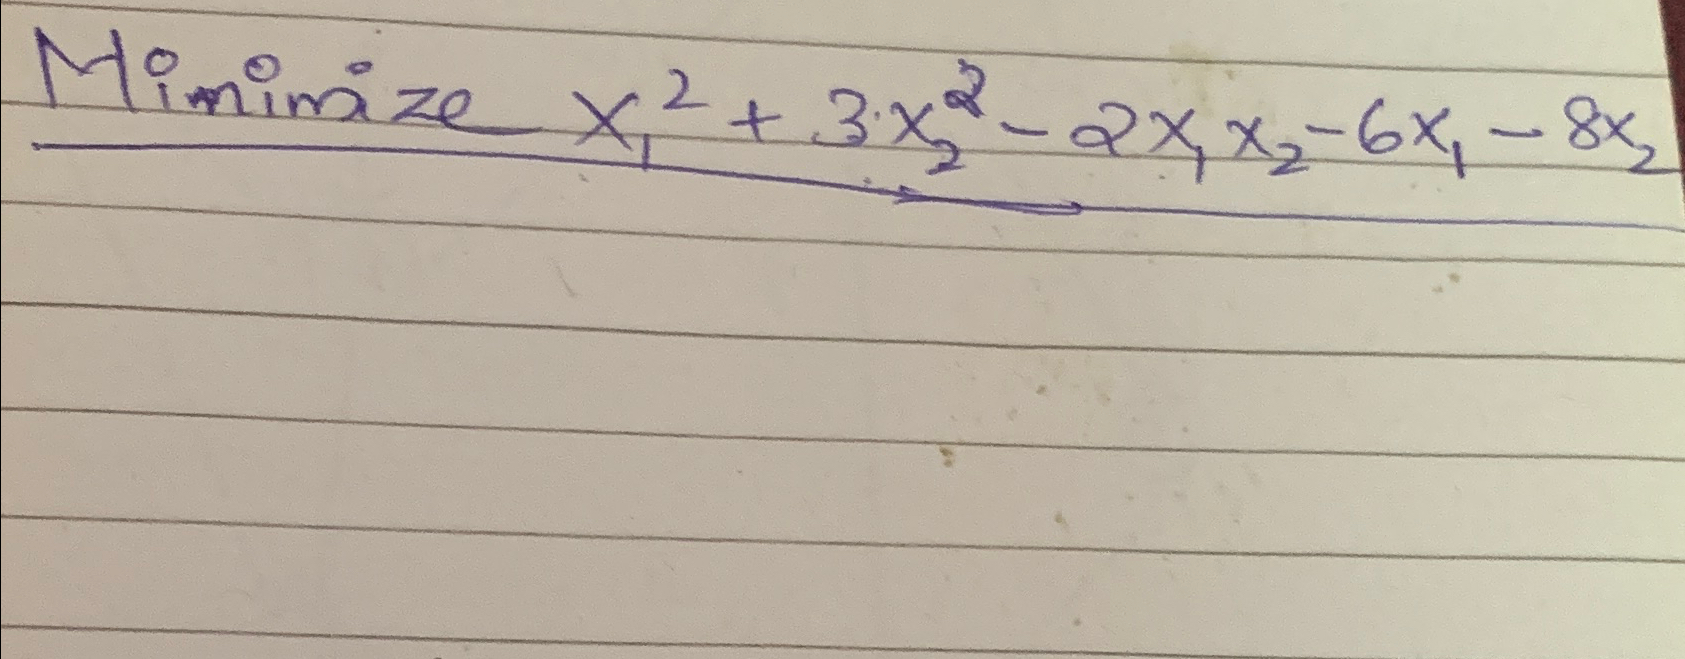 Minimize x₁² + 3x₂² - 2x₁x₂ - 6x₁ - 8x₂